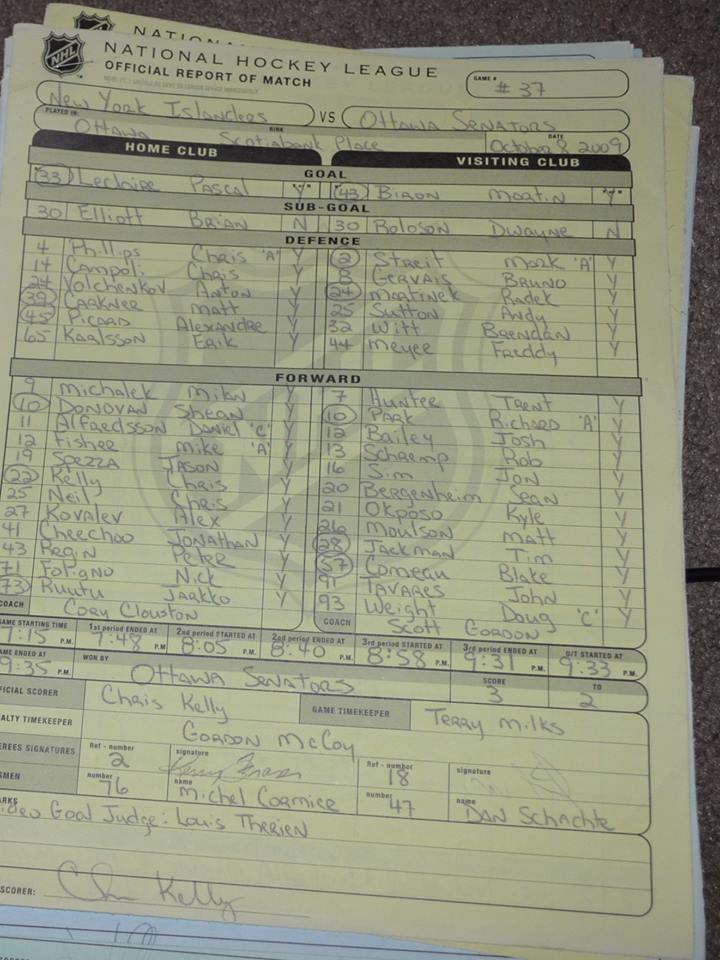 NATIONAL HOCKEY LEAGUE
OFFICIAL REPORT OF MATCH
GAME # # 37
NHL
New York Islanders VS Ottawa Senators
PLAYED IN: Ottawa RINK Scotiabank Place DATE October 8 2009
HOME CLUB VISITING CLUB
GOAL
33 Leclaire Pascal Y 43 Biron Martin Y
SUB-GOAL
30 Elliott Brian N 30 Roloson Dwayne N
DEFENCE
4 Phillips Chris 'A' Y 2 Streit Mark 'A' Y
14 Campoli Chris Y 8 Gervais Bruno Y
24 Volchenkov Anton Y 24 Martinek Radek Y
39 Carkner Matt Y 25 Sutton Andy Y
45 Picard Alexandre Y 32 Witt Brendan Y
65 Karlsson Erik Y 44 Meyer Freddy Y
FORWARD
9 Michalek Milan Y 7 Hunter Trent Y
10 Donovan Shean Y 10 Park Richard 'A' Y
11 Alfredsson Daniel 'C' Y 12 Bailey Josh Y
12 Fisher Mike 'A' Y 13 Schremp Rob Y
19 Spezza Jason Y 16 Sim Jon Y
22 Kelly Chris Y 20 Bergenheim Sean Y
25 Neil Chris Y 21 Okposo Kyle Y
27 Kovalev Alex Y 26 Moulson Matt Y
41 Cheechoo Jonathan Y 28 Jackman Tim Y
43 Regin Peter Y 57 Comeau Blake Y
71 Foligno Nick Y 91 Tavares John Y
73 Ruutu Jarkko Y 93 Weight Doug 'C' Y
COACH Cory Clouston COACH Scott Gordon
GAME STARTING TIME 1st period ENDED AT 2nd period STARTED AT 2nd period ENDED AT 3rd period STARTED AT 3rd period ENDED AT O/T STARTED AT
7:15 P.M. 7:48 P.M. 8:05 P.M. 8:40 P.M. 8:58 P.M. 9:31 P.M. 9:33 P.M.
GAME ENDED AT 9:35 P.M. WON BY Ottawa Senators SCORE 3 TO 2
OFFICIAL SCORER Chris Kelly GAME TIMEKEEPER Terry Milks
PENALTY TIMEKEEPER Gordon McCoy
REFEREES SIGNATURES Ref - number 2 signature Ref - number 18 signature
LINESMEN number 76 name Michel Cormier number 47 name Dan Schachte
REMARKS Video Goal Judge: Louis Therien
SCORER: Chris Kelly